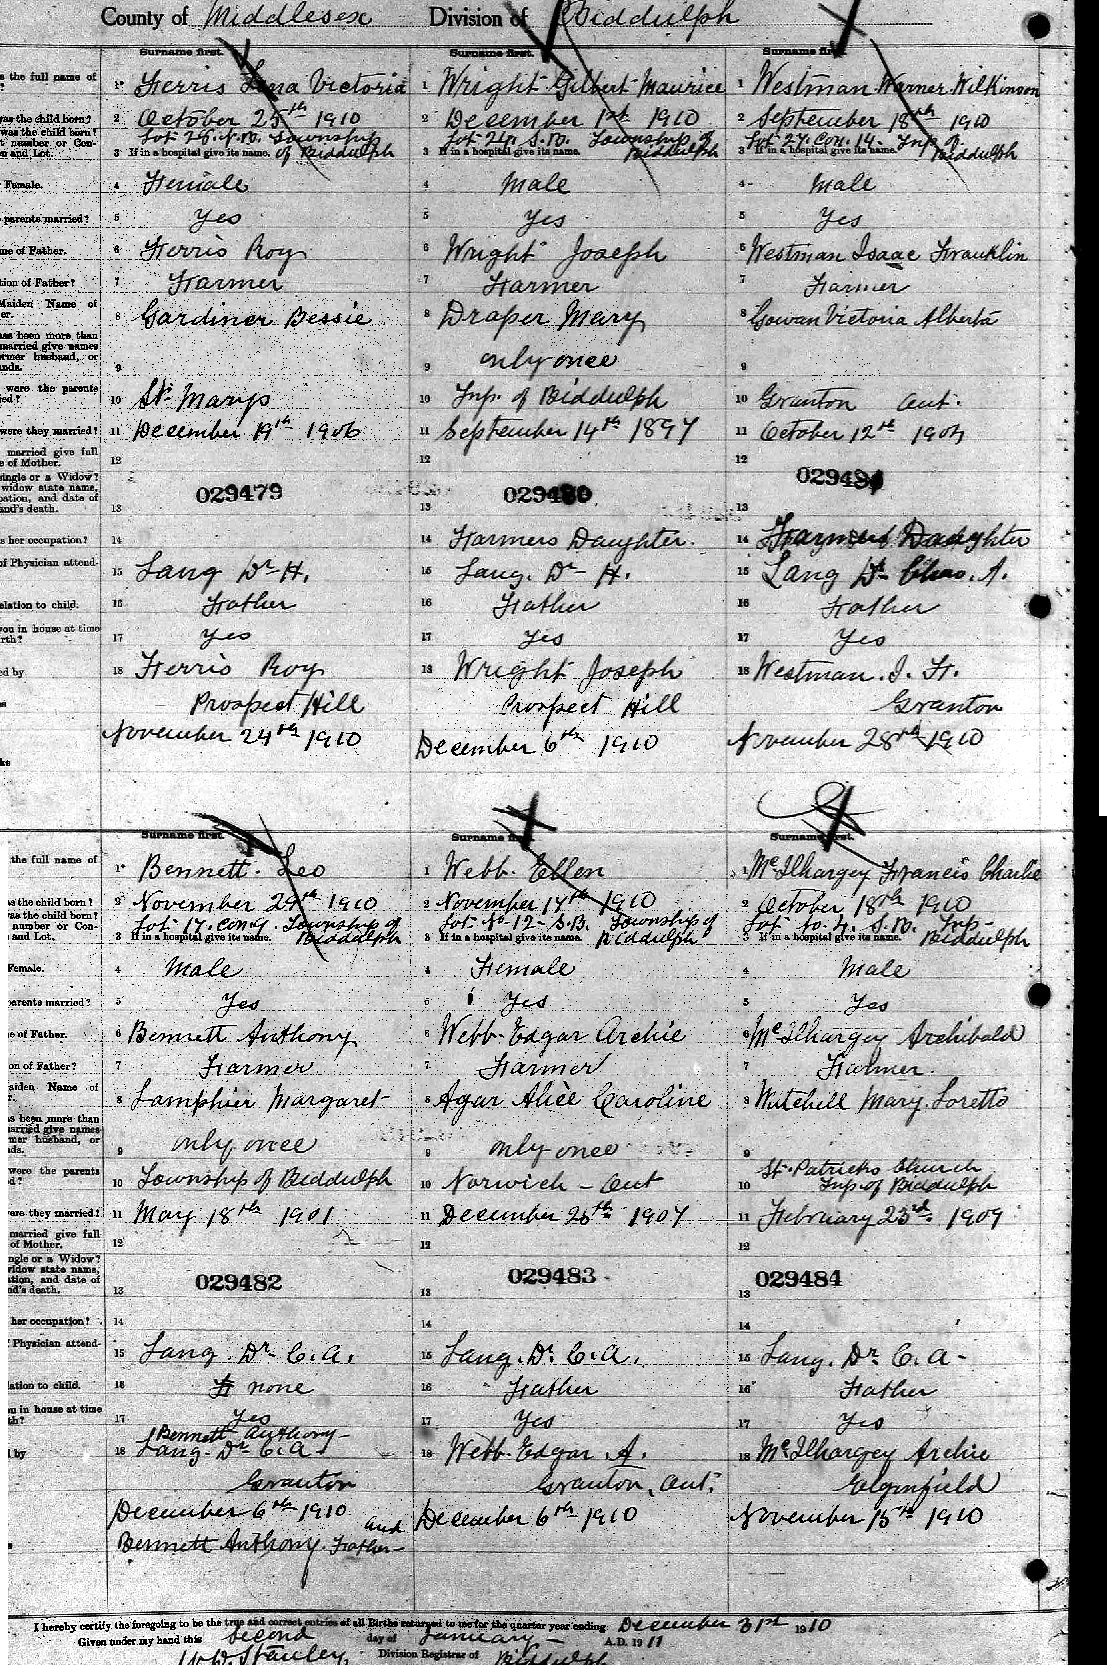 County of Middlesex Division of Biddulph
Surname first. Surname first. Surname first.
the full name of
1 Ferris Lena Victoria
1 Wright Gilbert Maurice
1 Westman Warner Wilkinson
was the child born?
2 October 25th 1910
2 December 1st 1910
2 September 18th 1910
was the child born?
number or Con-
and Lot.
Lot 28. N.B. Township
3 If in a hospital give its name. of Biddulph
Lot 26. S.B. Township of
3 If in a hospital give its name. Biddulph
Lot 27. Con. 14. Tnp. of
3 If in a hospital give its name. Biddulph
Female.
4 Female
4 Male
4 Male
parents married?
5 Yes
5 Yes
5 Yes
me of Father.
6 Ferris Roy
6 Wright Joseph
6 Westman Isaac Franklin
tion of Father?
7 Farmer
7 Farmer
7 Farmer
Maiden Name of
er.
8 Gardiner Bessie
8 Draper Mary
8 Gowan Victoria Alberta
has been more than
married give names
ormer husband, or
nds.
9
9 only once
9
were the parents
ied?
10 St. Marys
10 Tnp. of Biddulph
10 Granton Ont.
were they married?
11 December 19th 1906
11 September 14th 1897
11 October 12th 1904
married give full
e of Mother.
12
12
12
single or a Widow?
widow state name,
pation, and date of
and's death.
029479
029480
029481
13
13
13
s her occupation?
14
14 Farmers Daughter.
14 Farmers Daughter
of Physician attend-
15 Lang Dr H.
15 Lang. Dr H.
15 Lang Dr Chas. A.
elation to child.
16 Father
16 Father
16 Father
you in house at time
rth?
17 Yes
17 Yes
17 Yes
ed by
18 Ferris Roy
18 Wright Joseph
18 Westman. I. F.
Prospect Hill
Prospect Hill
Granton
November 24th 1910
December 6th 1910
November 28th 1910
ks
Surname first. Surname first. Surname first.
the full name of
1 Bennett. Leo
1 Webb. Ellen
1 McIlhargey Francis Charlie
as the child born?
2 November 29th 1910
2 November 14th 1910
2 October 18th 1910
was the child born?
number or Con-
and Lot.
Lot 17. Con 4. Township of
3 If in a hospital give its name. Biddulph
Lot No 12 - S.B. Township of
3 If in a hospital give its name. Biddulph
Lot No. 4. S.B. Tnp-
3 If in a hospital give its name. Biddulph
Female.
4 Male
4 Female
4 Male
parents married?
5 Yes
5 Yes
5 Yes
e of Father.
6 Bennett Anthony
6 Webb. Edgar Archie
6 McIlhargey Archibald
on of Father?
7 Farmer
7 Farmer
7 Farmer.
aiden Name of
r.
8 Lamphier Margaret
8 Agar Alice Caroline
8 Mitchell Mary Loretto
as been more than
arried give names
mer husband, or
ds.
9 only once
9 only once
9
were the parents
d?
10 Township of Biddulph
10 Norwich - Ont
St. Patricks Church
10 Tnp. of Biddulph
ere they married?
11 May 18th 1901
11 December 25th 1907
11 February 23rd 1909
married give full
of Mother.
12
12
12
ngle or a Widow?
widow state name,
ation, and date of
nd's death.
029482
029483
029484
13
13
13
her occupation?
14
14
14
Physician attend-
15 Lang. Dr C. A.
15 Lang. Dr C. A.
15 Lang. Dr C. A-
lation to child.
16 none
16 Father
16 Father
ou in house at time
th?
17 Yes
17 Yes
17 Yes
d by
Bennett Anthony-
18 Lang. Dr C. A.
18 Webb. Edgar A.
18 McIlhargey Archie
Granton
Granton, Ont.
Elginfield
December 6th 1910
December 6th 1910
November 15th 1910
and
Bennett Anthony. Father-
I hereby certify the foregoing to be the true and correct entries of all Births returned to me for the quarter year ending December 31st 1910
Given under my hand this second day of January- A.D. 1911
W D Stanley Division Registrar of Biddulph